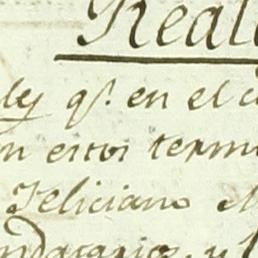 Reale
ley qe. en el c
n estos term
Feliciano M
ndatario, y l